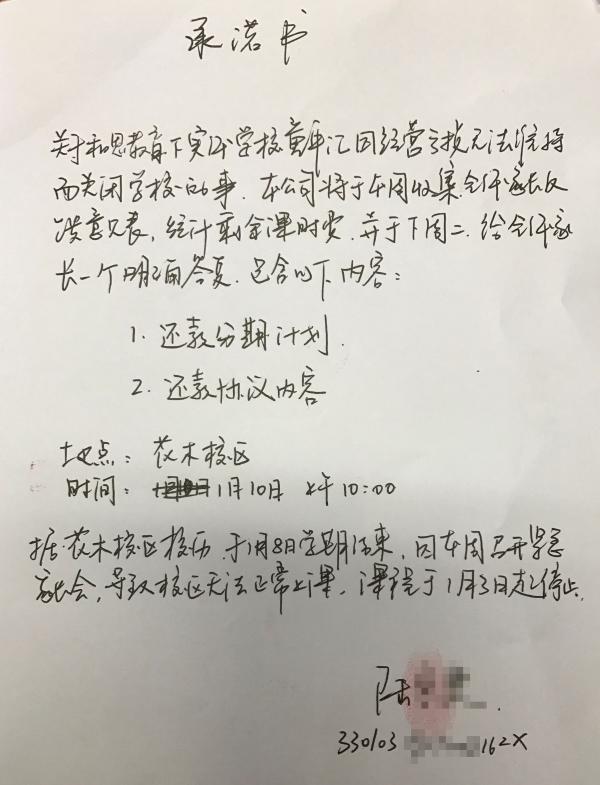 承诺书
关于和思教育下实体学校童军汇因经营亏损无法维持
而关闭学校的事.本公司将于本周收集全体家长反
馈意见表,统计剩余课时费.并于下周二.给全体家
长一个明确答复.包含以下内容:
1.还款分期计划.
2.还款协议内容
地点:花木校区
时间:1月10日 上午10:00
据花木校区校历.于1月8日学期结束,因本周召开紧急
家长会,导致校区无法正常上课.课程于1月3日起停止.
陆
330103 162X